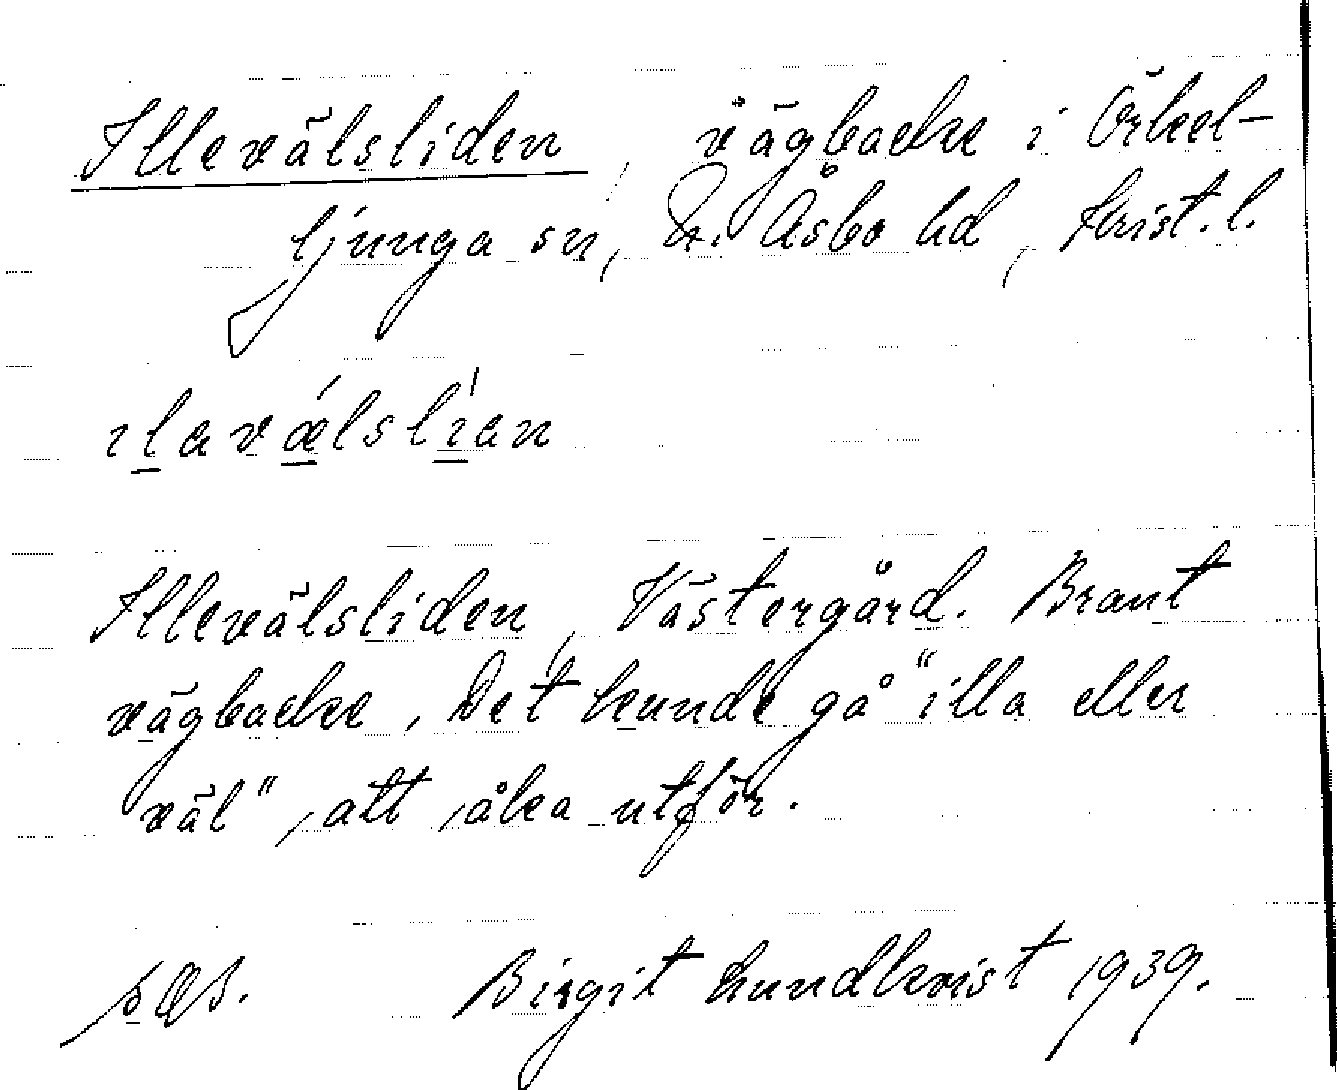 Illevälsliden, vägbacke i Örkel-
ljunga sn, N. Åsbo hd, Krist. l.
ılavǽlslían
Illevälsliden, Västergård. Brant
vägbacke. Det kunde gå "illa eller
väl", att åka utför.
Birgit Lundkvist 1939.